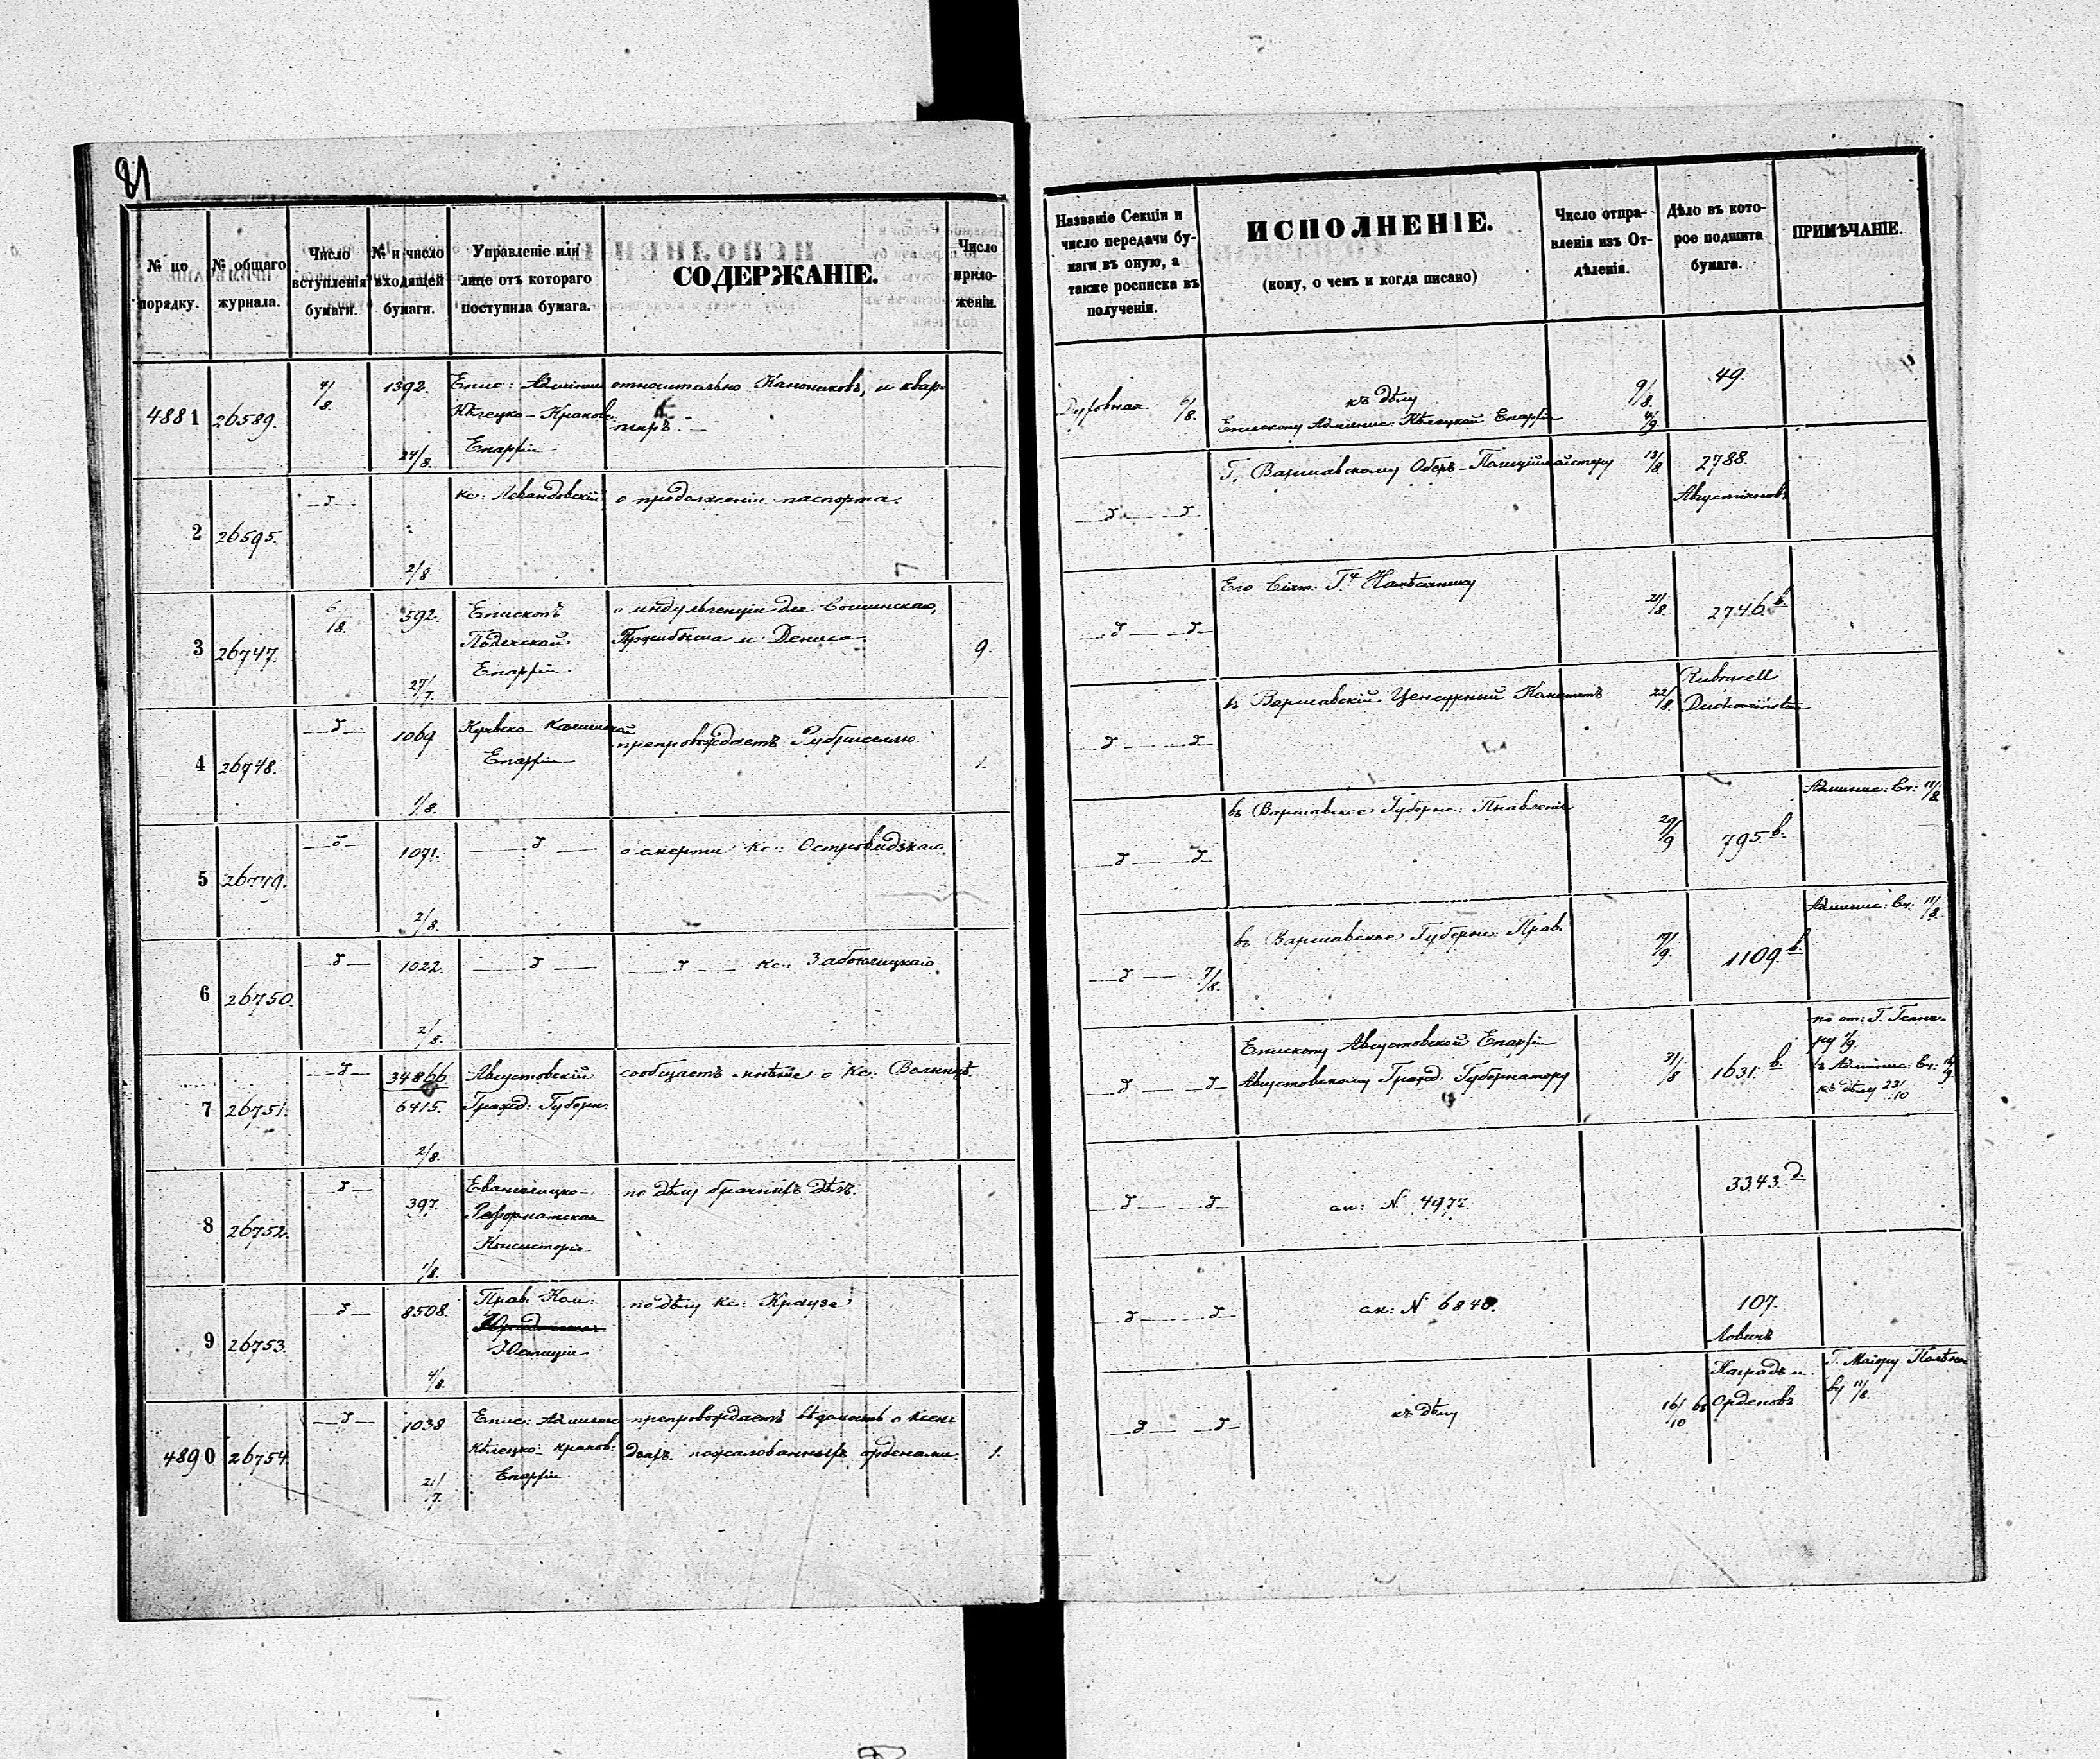 21
№ по порядку.
№ общаго журнала.
Число вступленія бумаги.
№ и число входящей бумаги.
Управленіе или лице отъ котораго поступила бумага.
СОДЕРЖАНІЕ.
Число приложеніи.
Названіе Секціи и число передачи бумаги въ оную, а также росписка въ полученіи.
ИСПОЛНЕНІЕ.
(кому, о чемъ и когда писано)
Число отправленія изъ Отдѣленія.
Дѣло въ которое подшита бумага.
ПРИМѢЧАНІЕ.
4881 26589. 4/8. 1392. 24/8.
Епис: Админис
Кѣлецко-Краков:
Епархіи
относительно Канониковъ, и квартиръ.
Духовная 6/8.
къ дѣлу 9/8. 49.
Епископу Админис: Кѣлецкой Епархіи 4/9
2 26595. 2/8
кс: Левандовскій о продолженіи паспорта.
Г. Варшавскому Оберъ-Полиціймайстеру 13/8 2788.
Августіяновъ
3 26747. 6/8. 592. 27/7.
Епископъ
Подляской
Епархіи
о индульгенціи для
и Дениса
9.
Его Сіят: Гⁿ Намѣстнику 21/8 2746.b
4 26748. 1069 1/8.
Куявско-Калишской
Епархіи
препровождаетъ Рубрицеллю. 1.
въ Варшавскій Ценсурный Комитетъ 22/8.
Rubricell
5 26749. 1071. 2/8.
о смерти Кс: Островидзкаго.
въ Варшавское Губерн: Правленіе 29/9 795.b.
Админис: Сч: 11/8
6 26750. 1022. 2/8.
Кс: Заболицкаго
7/8.
въ Варшавское Губерн: Прав. 19/9. 1109.b
Админис: Сч: 11/8.
7 26751. 34866 6415. 2/8.
Августовскій
Гражд: Губерн.
сообщаетъ мнѣніе о Кс:
Епископу Августовской Епархіи
Августовскому Гражд: Губернатору 31/8 1631.b.
къ дѣлу 23/10
8 26752. 397. 1/8.
Евангелицко-
Реформатская
Консисторія
по дѣлу брачныхъ дѣлъ.
см: N 4977. 3343.d
9 26753. 8508. 4/8.
Прав. Ком:
Юстиціи
по дѣлу Кс: Краузе
см: N 6840. 107.
Ловичъ
4890 26754. 1038 21/7.
Епис: Админис
Кѣлецко-Краков:
Епархіи
препровождаетъ вѣдомость о ксендзахъ пожалованныхъ орденами. 1.
къ дѣлу 16/10
Наградъ и
Орденовъ
Г. Маіору
11/8.